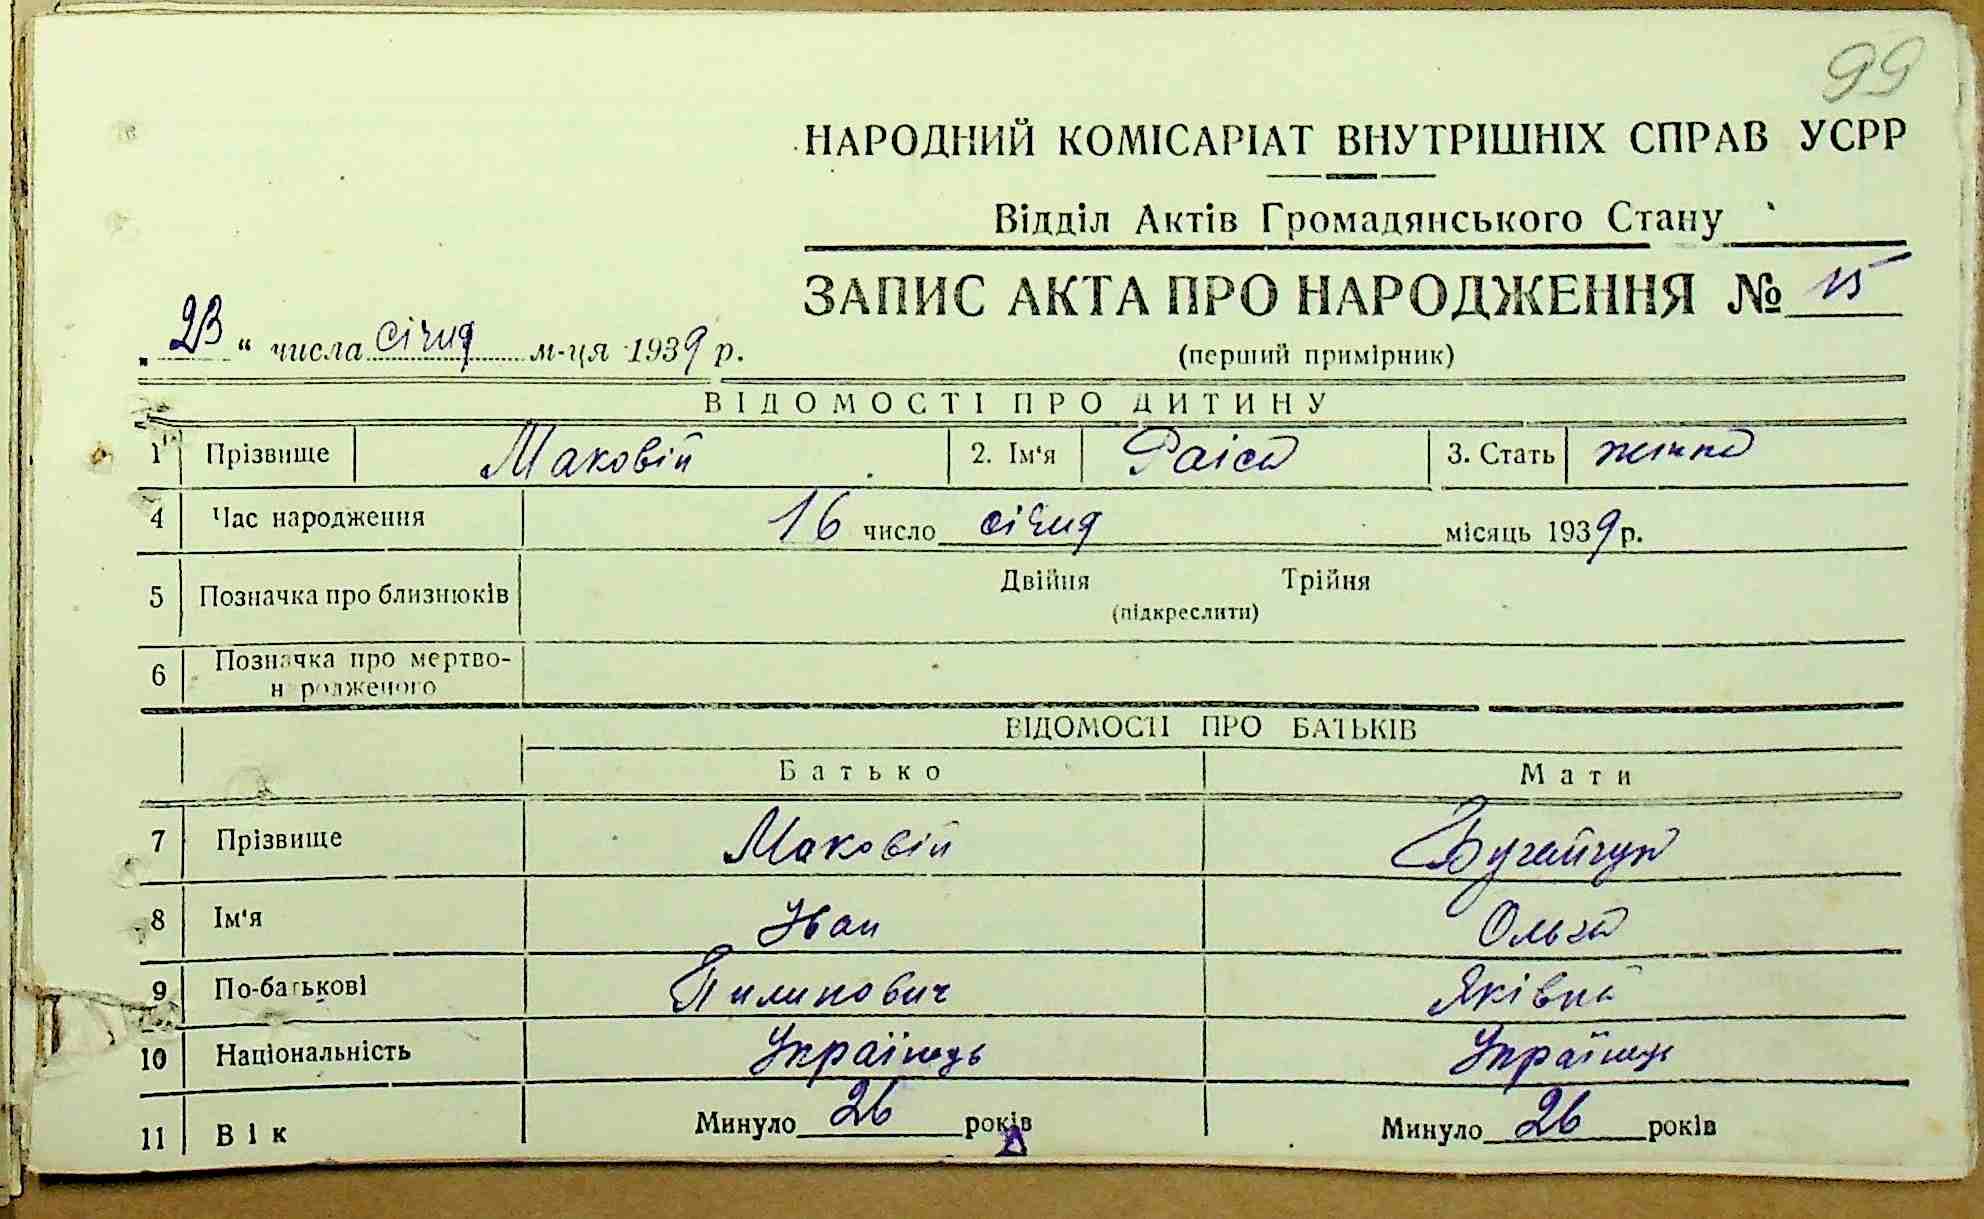 99
НАРОДНИЙ КОМІСАРІАТ ВНУТРІШНІХ СПРАВ УСРР
Відділ Актів Громадянського Стану
ЗАПИС АКТА ПРО НАРОДЖЕННЯ № 15
„23“ числа січня м-ця 1939 р.
(перший примірник)
ВІДОМОСТІ ПРО ДИТИНУ
1 Прізвище Маковій 2. Ім'я Раіса 3. Стать жіноч
4 Час народження 16 число січня місяць 1939 р.
5 Позначка про близнюків Двійня Трійня
(підкреслити)
6 Позначка про мертво-
народженого
ВІДОМОСТІ ПРО БАТЬКІВ
Батько Мати
7 Прізвище Маковій Бугайчук
8 Ім'я Іван Ольга
9 По-батькові Пилипович Яківна
10 Національність Українець Українець
11 Вік Минуло 26 років Минуло 26 років